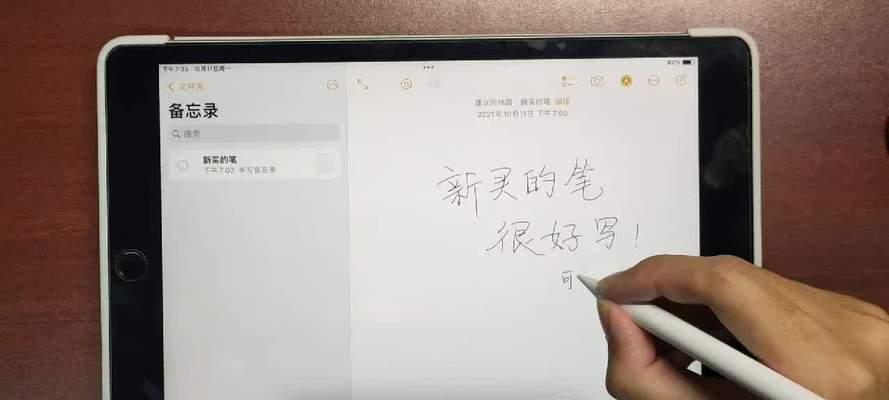 下午7:03 10月11日周一
82%
文件夹
备忘录
搜索
新买的笔
下午7:02 手写备忘录
建议的标题: 新买的笔 编辑
2021年10月11日 下午7:02
新买的笔
很好写!
可